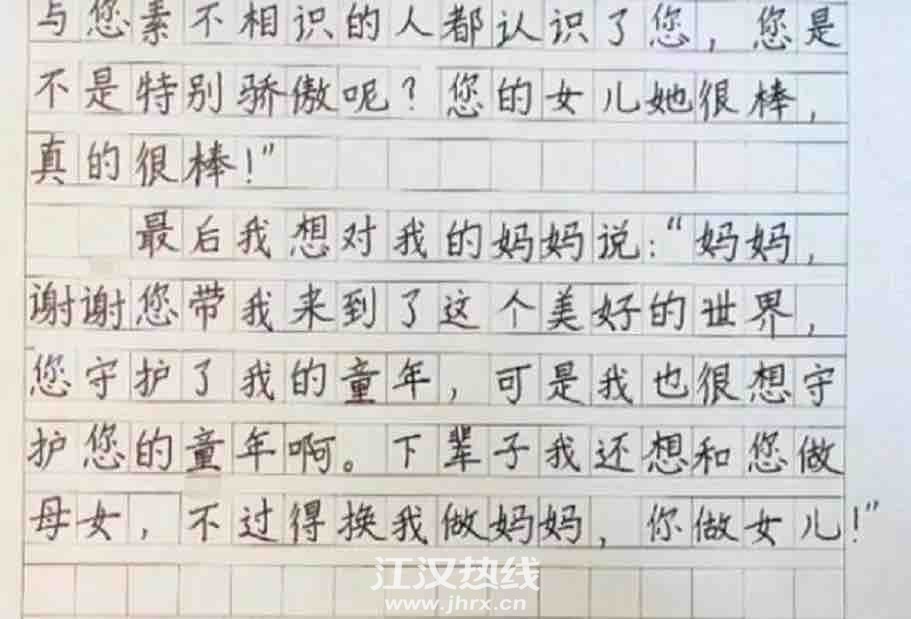 与您素不相识的人都认识了您，您是
不是特别骄傲呢？您的女儿她很棒，
真的很棒！”
最后我想对我的妈妈说：“妈妈，
谢谢您带我来到了这个美好的世界，
您守护了我的童年，可是我也很想守
护您的童年啊。下辈子我还想和您做
母女，不过得换我做妈妈，你做女儿！”
江汉热线
www.jhrx.cn